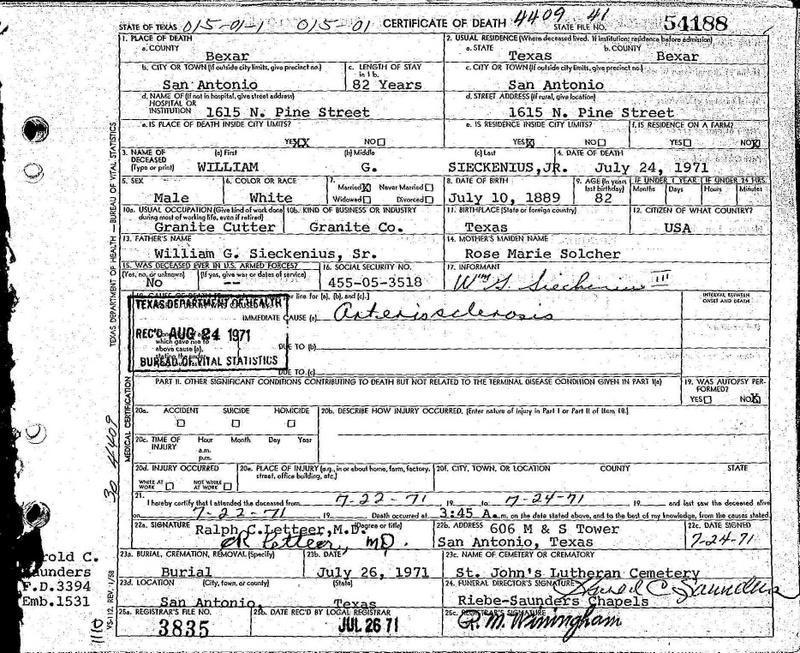 STATE OF TEXAS 015-01-1 015-01 CERTIFICATE OF DEATH 4409 41 STATE FILE NO. 54188
1. PLACE OF DEATH
a. COUNTY Bexar
2. USUAL RESIDENCE (Where deceased lived. If institution: residence before admission)
a. STATE Texas b. COUNTY Bexar
b. CITY OR TOWN (If outside city limits, give precinct no.) San Antonio
c. LENGTH OF STAY in 1 b. 82 Years
c. CITY OR TOWN (If outside city limits, give precinct no.) San Antonio
d. NAME OF (If not in hospital, give street address) HOSPITAL OR INSTITUTION 1615 N. Pine Street
d. STREET ADDRESS (If rural, give location) 1615 N. Pine Street
e. IS PLACE OF DEATH INSIDE CITY LIMITS? YES XX NO
e. IS RESIDENCE INSIDE CITY LIMITS? YES X NO
f. IS RESIDENCE ON A FARM? YES NO X
3. NAME OF DECEASED (Type or print) (a) First WILLIAM (b) Middle G. (c) Last SIECKENIUS, JR.
4. DATE OF DEATH July 24, 1971
5. SEX Male
6. COLOR OR RACE White
7. Married X Never Married Widowed Divorced
8. DATE OF BIRTH July 10, 1889
9. AGE (In years last birthday) 82 IF UNDER 1 YEAR Months Days IF UNDER 24 HRS. Hours Minutes
10a. USUAL OCCUPATION (Give kind of work done during most of working life, even if retired) Granite Cutter
10b. KIND OF BUSINESS OR INDUSTRY Granite Co.
11. BIRTHPLACE (State or foreign country) Texas
12. CITIZEN OF WHAT COUNTRY? USA
13. FATHER'S NAME William G. Sieckenius, Sr.
14. MOTHER'S MAIDEN NAME Rose Marie Solcher
15. WAS DECEASED EVER IN U.S. ARMED FORCES? (Yes, no, or unknown) No (If yes, give war or dates of service) --
16. SOCIAL SECURITY NO. 455-05-3518
17. INFORMANT Wm G. Sieckenius III
line for (a), (b), and (c).]
INTERVAL BETWEEN ONSET AND DEATH
IMMEDIATE CAUSE (a) Arteriosclerosis
TEXAS DEPARTMENT OF HEALTH
REC'D AUG 24 1971
BUREAU OF VITAL STATISTICS
DUE TO (b)
DUE TO (c)
PART II. OTHER SIGNIFICANT CONDITIONS CONTRIBUTING TO DEATH BUT NOT RELATED TO THE TERMINAL DISEASE CONDITION GIVEN IN PART I(a)
19. WAS AUTOPSY PERFORMED? YES NO X
20a. ACCIDENT SUICIDE HOMICIDE
20b. DESCRIBE HOW INJURY OCCURRED. (Enter nature of injury in Part I or Part II of item 18.)
20c. TIME OF INJURY Hour Month Day Year
a.m.
p.m.
20d. INJURY OCCURRED WHILE AT WORK NOT WHILE AT WORK
20e. PLACE OF INJURY (e.g., in or about home, farm, factory, street, office building, etc.)
20f. CITY, TOWN, OR LOCATION COUNTY STATE
21. I hereby certify that I attended the deceased from 7-22-71 19 to 7-24-71 19 and last saw the deceased alive
on 7-22-71 19 Death occurred at 3:45 A.m. on the date stated above, and to the best of my knowledge, from the causes stated.
22a. SIGNATURE (Degree or title) Ralph C. Letteer, M.D.
CR Letteer, MD.
22b. ADDRESS 606 M & S Tower
San Antonio, Texas
22c. DATE SIGNED 7-24-71
23a. BURIAL, CREMATION, REMOVAL (Specify) Burial
23b. DATE July 26, 1971
23c. NAME OF CEMETERY OR CREMATORY St. John's Lutheran Cemetery
23d. LOCATION (City, town, or county) (State) San Antonio, Texas
24. FUNERAL DIRECTOR'S SIGNATURE Harold C Saunders
Riebe-Saunders Chapels
25a. REGISTRAR'S FILE NO. 3835
25b. DATE REC'D BY LOCAL REGISTRAR JUL 26 71
25c. REGISTRAR'S SIGNATURE R. M. Winingham
arold C.
aunders
F.D.3394
Emb.1531
TEXAS DEPARTMENT OF HEALTH — BUREAU OF VITAL STATISTICS
MEDICAL CERTIFICATION
30 4409
VS-112, REV. 1/58
1110